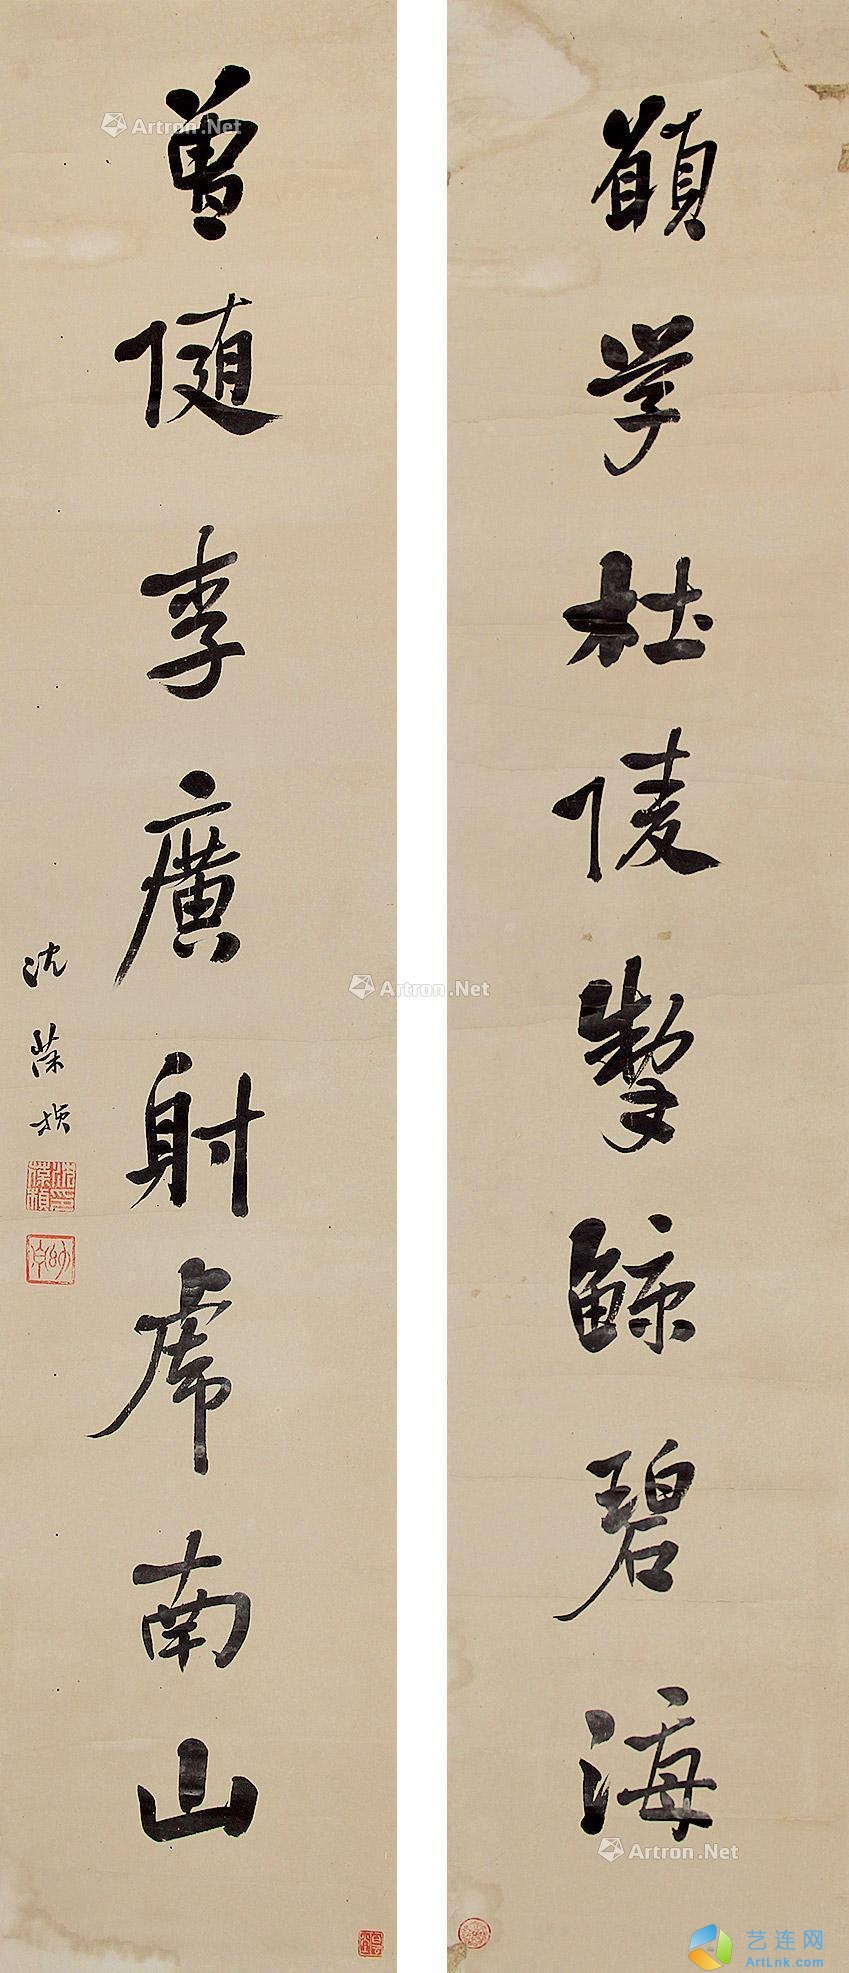 願學杜陵掣鯨碧海
曾随李廣射虎南山
沈葆楨
沈葆楨印
幼丹
Artron.Net
Artron.Net
Artron.Net
艺连网
ArtLnk.com